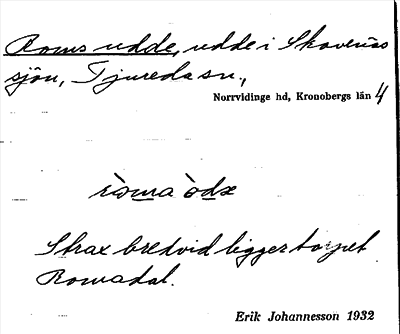 Roms udde, udde i Skavenäs
sjön, Tjureda sn.,
Norrvidinge hd, Kronobergs län 4
ròma òdə
Strax bredvid ligger torpet
Romadal.
Erik Johannesson 1932